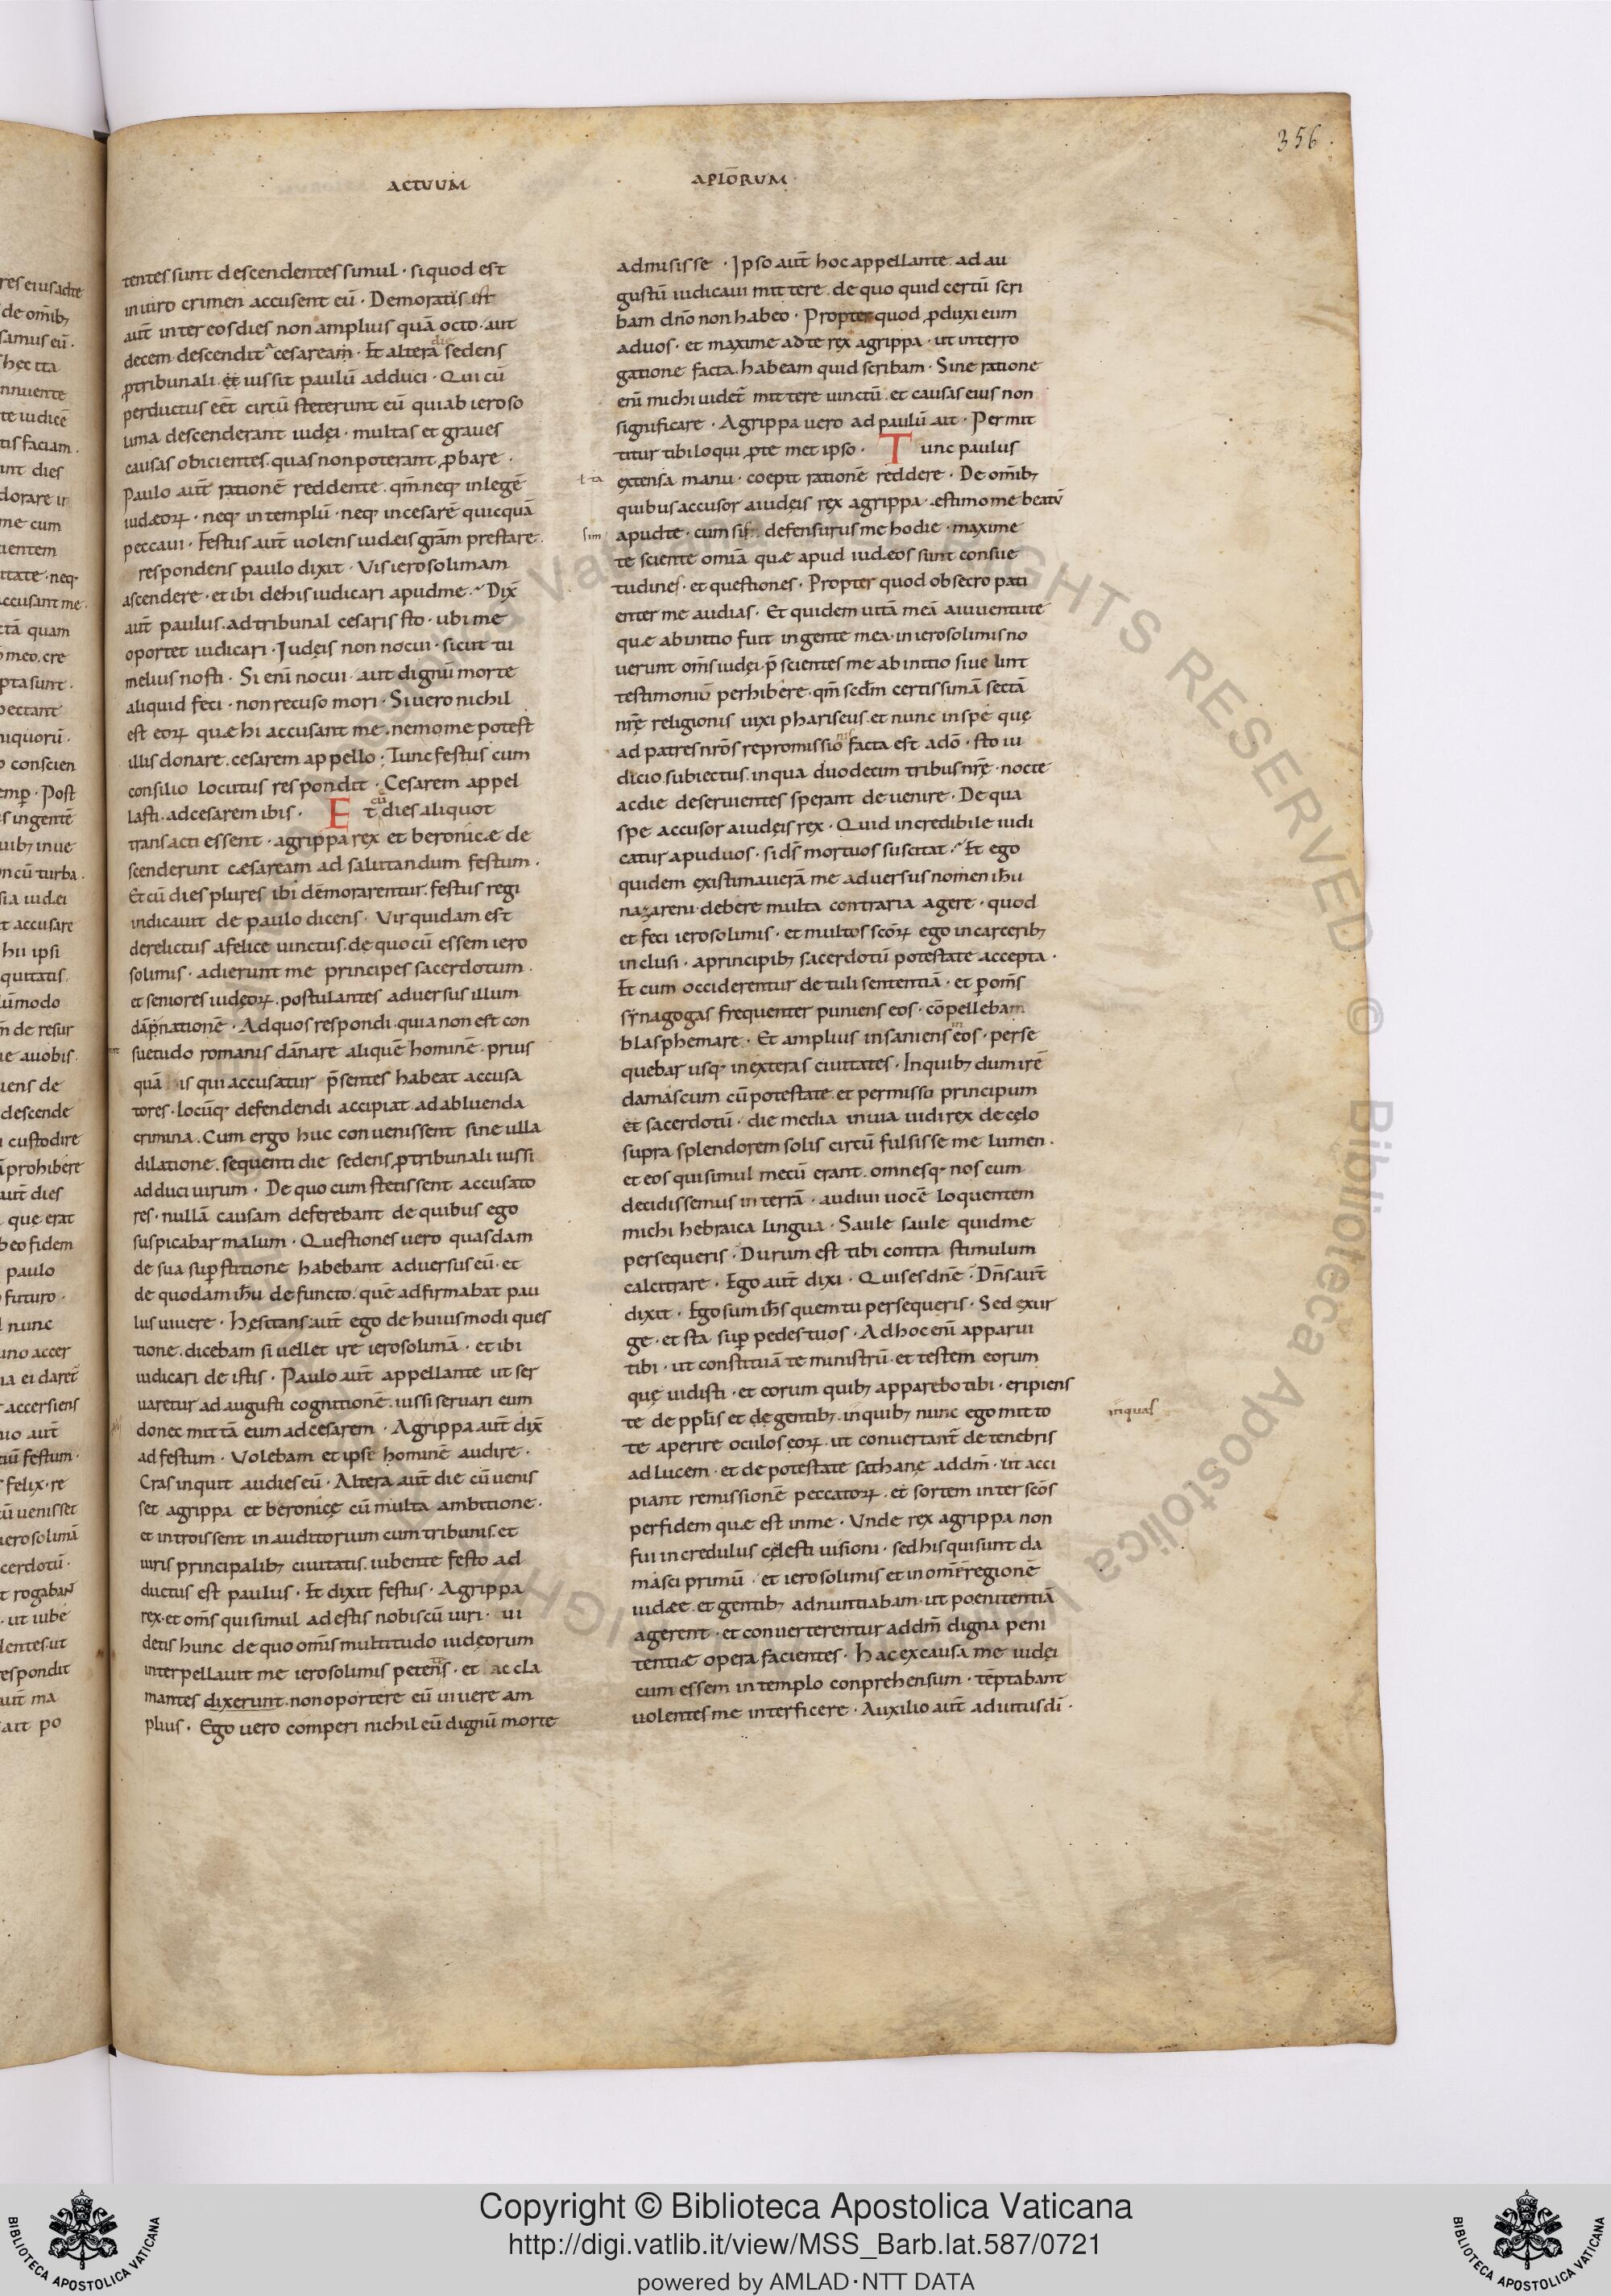 356.
ACTUUM
APL̅ORUM
tentes sunt descendentes simul · si quod est
in uiro crimen accusent eu̅ · Demoratus
aut̅ inter eos dies non amplius qua̅ octo · aut
decem · descendit cesaream · Et altera die sedens
ꝓ tribunali · et iussit paulu̅ adduci · Qui cu̅
perductus ee̅t circu̅ steterunt eu̅ qui ab ieroso
lima descenderant iudęi · multas et graues
causas obicientes · quas non poterant ꝓbare ·
Paulo aut̅ ratione̅ reddente · qm̅ neq· in lege̅
iudæoꝝ · neq· in templu̅ · neq· in cesare̅ quicqua̅
peccaui · Festus aut̅ uolens iudæis gra̅m prestare ·
respondens paulo dixit · Vis ierosolimam
ascendere · et ibi de his iudicari apud me · Dix̅
aut̅ paulus · ad tribunal cesaris sto · ubi me
oportet iudicari · Iudęis non nocui · sicut tu
melius nosti · Si eni̅ nocui · aut dignu̅ morte
aliquid feci · non recuso mori · Si uero nichil
est eoꝝ quæ hi accusant me · nemo me potest
illis donare · cesarem appello · Tunc festus cum
consilio locutus respondit · Cesarem appel
lasti · ad cesarem ibis · Et cu̅ dies aliquot
transacti essent · agrippa rex et beronicæ de
scenderunt cæsaream ad salutandum festum ·
Et cu̅ dies plures ibi demorarentur · festus regi
indicauit de paulo dicens · Vir quidam est
derelictus a felice uinctus · de quo cu̅ essem iero
solimis · adierunt me principes sacerdotum ·
et seniores iudęoꝝ · postulantes aduersus illum
da̅pnatione̅ · Ad quos respondi · quia non est con
suetudo romanis da̅nare alique̅ homine̅ · prius
qua̅ is qui accusatur p̅sentes habeat accusa
tores · locu̅q· defendendi accipiat ad abluenda
crimina · Cum ergo huc conuenissent sine ulla
dilatione · sequenti die sedens ꝓ tribunali iussi
adduci uirum · De quo cum stetissent accusato
res · nulla̅ causam deferebant de quibus ego
suspicabar malum · Questiones uero quasdam
de sua sup̱stitione habebant aduersus eu̅ · et
de quodam ih̅u defuncto · que̅ adfirmabat pau
lus uiuere · Hęsitans aut̅ ego de huiusmodi ques
tione · dicebam si uellet ire ierosolima̅ · et ibi
iudicari de istis · Paulo aut̅ appellante ut ser
uaretur ad augusti cognitione̅ · iussi seruari eum
donec mitta̅ eum ad cesarem · Agrippa aut̅ dix̅
ad festum · Volebam et ipse homine̅ audire ·
Cras inquit audies eu̅ · Altera aut̅ die cu̅ uenis
set agrippa et beronicę cu̅ multa ambitione ·
et introissent in auditorium cum tribunis · et
uiris principalib; ciuitatis · iubente festo ad
ductus est paulus · Et dixit festus · Agrippa
rex · et om̅s qui simul adestis nobiscu̅ uiri · ui
detis hunc de quo om̅is multitudo iudęorum
interpellauit me ierosolimis petens · et accla
mantes dixerunt · non oportere eu̅ uiuere am
plius · Ego uero comperi nichil eu̅ dignu̅ morte
admisisse · Ipso aut̅ hoc appellante ad au
gustu̅ iudicaui mittere · de quo quid certu̅ scri
bam dn̅o non habeo · Propter quod ꝓduxi eum
ad uos · et maxime ad te rex agrippa · ut interro
gatione facta · habeam quid scribam · Sine ratione
eni̅ michi uidet̅ mittere uinctu̅ · et causas eius non
significare · Agrippa uero ad paulu̅ ait · Permit
titur tibi loqui ꝓ te met ipso · Tunc paulus
extensa manu · coepit ratione̅ reddere · De om̅ib;
quibus accusor a iudęis rex agrippa · estimo me beatu̅
sim
apud te · cum defensurus me hodie · maxime
te sciente omia̅ quæ apud iudæos sunt consue
tudines · et questiones · Propter quod obsecro pati
enter me audias · Et quidem uita̅ mea̅ a iuuentute
quæ ab initio fuit in gente mea · in ierosolimis no
uerunt om̅s iudęi · p̅scientes me ab initio si uelint
testimoniu̅ perhibere · qm̅ scd̅m certissima̅ secta̅
nr̅ę religionis uixi phariseus · et nunc in spe quę
ad patres nr̅os repromissio facta est a do̅ · sto iu
dicio subiectus · in qua duodecim tribus nr̅ę · nocte
ac die deseruientes sperant deuenire · De qua
spe accusor a iudęis rex · Quid incredibile iudi
catur apud uos · si ds̅ mortuos suscitat · Et ego
quidem existimauera̅ me aduersus nomen ih̅u
nazareni debere multa contraria agere · quod
et feci ierosolimis · et multos sco̅ꝝ ego in carcerib;
inclusi · a principib; sacerdotu̅ potestate accepta ·
Et cum occiderentur detuli sententia̅ · et p̱ om̅s
synagogas frequenter puniens eos · co̅pellebam
blasphemare · Et amplius insaniens in eos · perse
quebar usq· in exteras ciuitates · In quib; dum ire̅
damascum cu̅ potestate et permissu principum
et sacerdotu̅ · die media in uia uidi rex de cęlo
supra splendorem solis circu̅fulsisse me lumen ·
et eos qui simul mecu̅ erant · omnesq· nos cum
decidissemus in terra̅ · audiui uoce̅ loquentem
michi hebraica lingua · Saule saule quid me
persequeris · Durum est tibi contra stimulum
calcitrare · Ego aut̅ dixi · Quis es dne̅ · Dn̅s aut̅
dixit · Ego sum ih̅s quem tu persequeris · Sed exur
ge · et sta sup̱ pedes tuos · Ad hoc eni̅ apparui
tibi · ut constitua̅ te ministru̅ · et testem eorum
quę uidisti · et eorum quib; apparebo tibi · eripiens
te de ppl̅is et de gentib; · in quib; nunc ego mitto
in quas
te aperire oculos eoꝝ · ut conuertant̅ de tenebris
ad lucem · et de potestate sathanę ad dm̅ · ut acci
piant remissione̅ peccatoꝝ · et sortem inter sco̅s
per fidem quæ est in me · Vnde rex agrippa non
fui incredulus cęlesti uisioni · sed his qui sunt da
masci primu̅ · et ierosolimis et in om̅e̅ regione̅
iudæe · et gentib; adnuntiabam · ut poenitentia̅
agerent · et conuerterentur ad dm̅ digna peni
tentiæ opera facientes · Hac ex causa me iudęi
cum essem in templo conprehensum · te̅ptabant
uolentes me interficere · Auxilio aut̅ adiutus di̅ ·
Copyright © Biblioteca Apostolica Vaticana
http://digi.vatlib.it/view/MSS_Barb.lat.587/0721
powered by AMLAD·NTT DATA